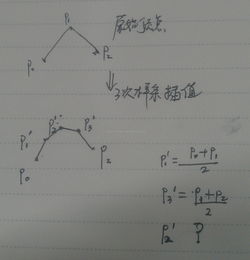 P₁
原始顶点
P₀
P₂
⇓ 3次样条插值
P₂'
P₁'
P₃'
P₀
P₂
P₁' = (P₀+P₁)/2
P₃' = (P₁+P₂)/2
P₂' ?